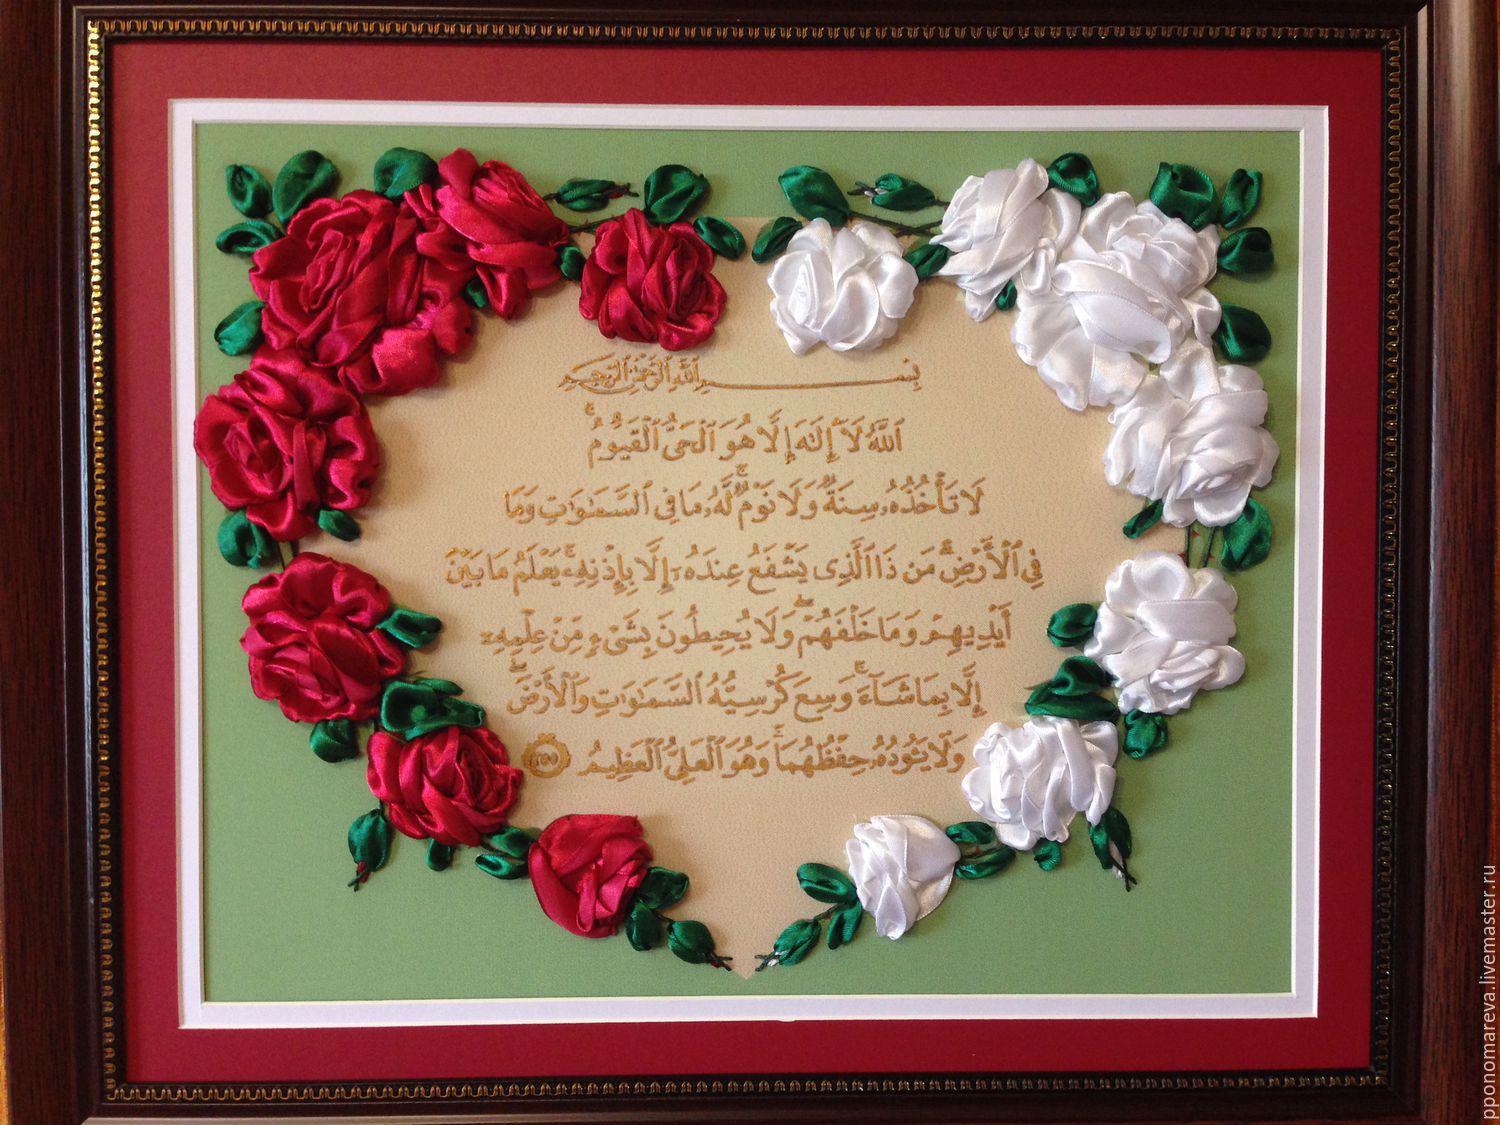 بِسْمِ ٱللَّهِ ٱلرَّحْمَٰنِ ٱلرَّحِيمِ
ٱللَّهُ لَآ إِلَٰهَ إِلَّا هُوَ ٱلْحَىُّ ٱلْقَيُّومُ ۚ
لَا تَأْخُذُهُۥ سِنَةٌ وَلَا نَوْمٌ ۚ لَّهُۥ مَا فِى ٱلسَّمَٰوَٰتِ وَمَا
فِى ٱلْأَرْضِ ۗ مَن ذَا ٱلَّذِى يَشْفَعُ عِندَهُۥٓ إِلَّا بِإِذْنِهِۦ ۚ يَعْلَمُ مَا بَيْنَ
أَيْدِيهِمْ وَمَا خَلْفَهُمْ ۖ وَلَا يُحِيطُونَ بِشَىْءٍ مِّنْ عِلْمِهِۦٓ
إِلَّا بِمَا شَآءَ ۚ وَسِعَ كُرْسِيُّهُ ٱلسَّمَٰوَٰتِ وَٱلْأَرْضَ ۖ
وَلَا يَـُٔودُهُۥ حِفْظُهُمَا ۚ وَهُوَ ٱلْعَلِىُّ ٱلْعَظِيمُ ٢٥٥
pponomareva.livemaster.ru